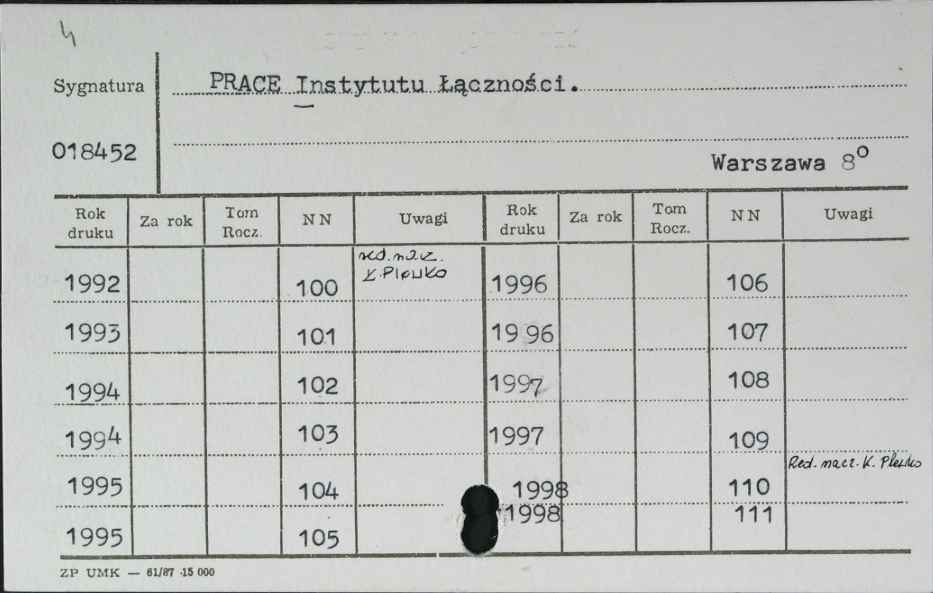 4
Sygnatura PRACE Instytutu Łączności.
018452
Warszawa 8º
Rok druku Za rok Tom Rocz. NN Uwagi Rok druku Za rok Tom Rocz. NN Uwagi
1992 100 red. nacz. K. Plewko 1996 106
1993 101 1996 107
1994 102 1997 108
1994 103 1997 109
1995 104 1998 110 Red. nacz. K. Plewko
1995 105 1998 111
ZP UMK — 61/87 ·15 000